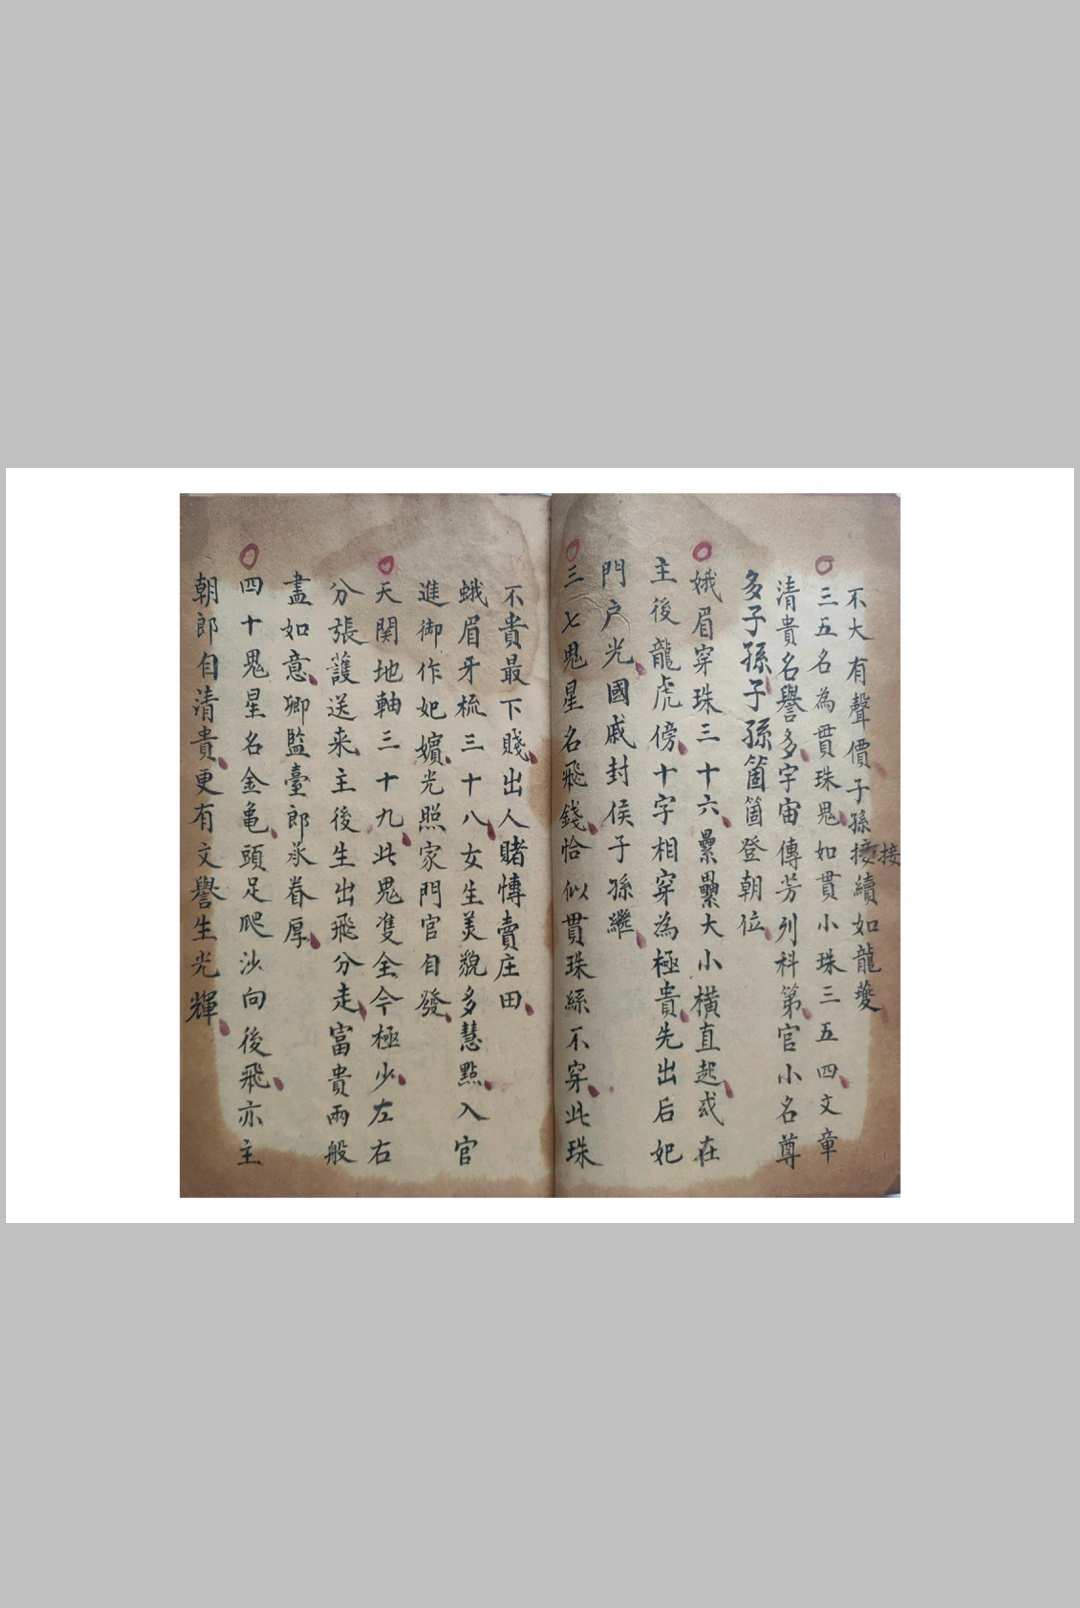 不大有聲價子孫接續如龍夔
接
三五名為貫珠鬼如貫小珠三五四文章
清貴名譽多宇宙傳芳列科第官小名尊
多子孫子孫箇箇登朝位
娥眉穿珠三十六纍纍大小橫直起或在
主後龍虎傍十字相穿為極貴先出后妃
門户光國戚封侯子孫繼
三七鬼星名飛錢恰似貫珠絲不穿此珠
不貴最下賤出人賭慱賣庄田
蛾眉牙梳三十八女生美貌多慧點入官
進御作妃嬪光照家門官自發
天関地軸三十九此鬼隻全今極少左右
分張護送来主後生出飛分走富貴兩般
盡如意卿監臺郎承眷厚
四十鬼星名金亀頭足爬沙向後飛亦主
朝郎自清貴更有文譽生光輝